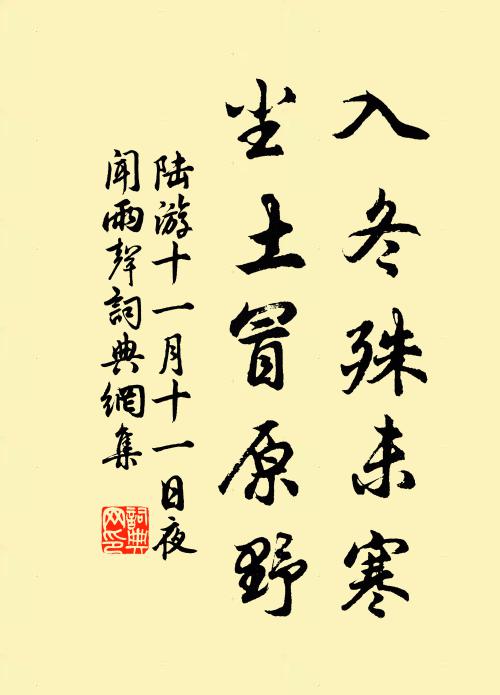 入冬殊未寒
尘土冒原野
陆游十一月十一日夜
闻雨聲詞典網集
詞典
网印